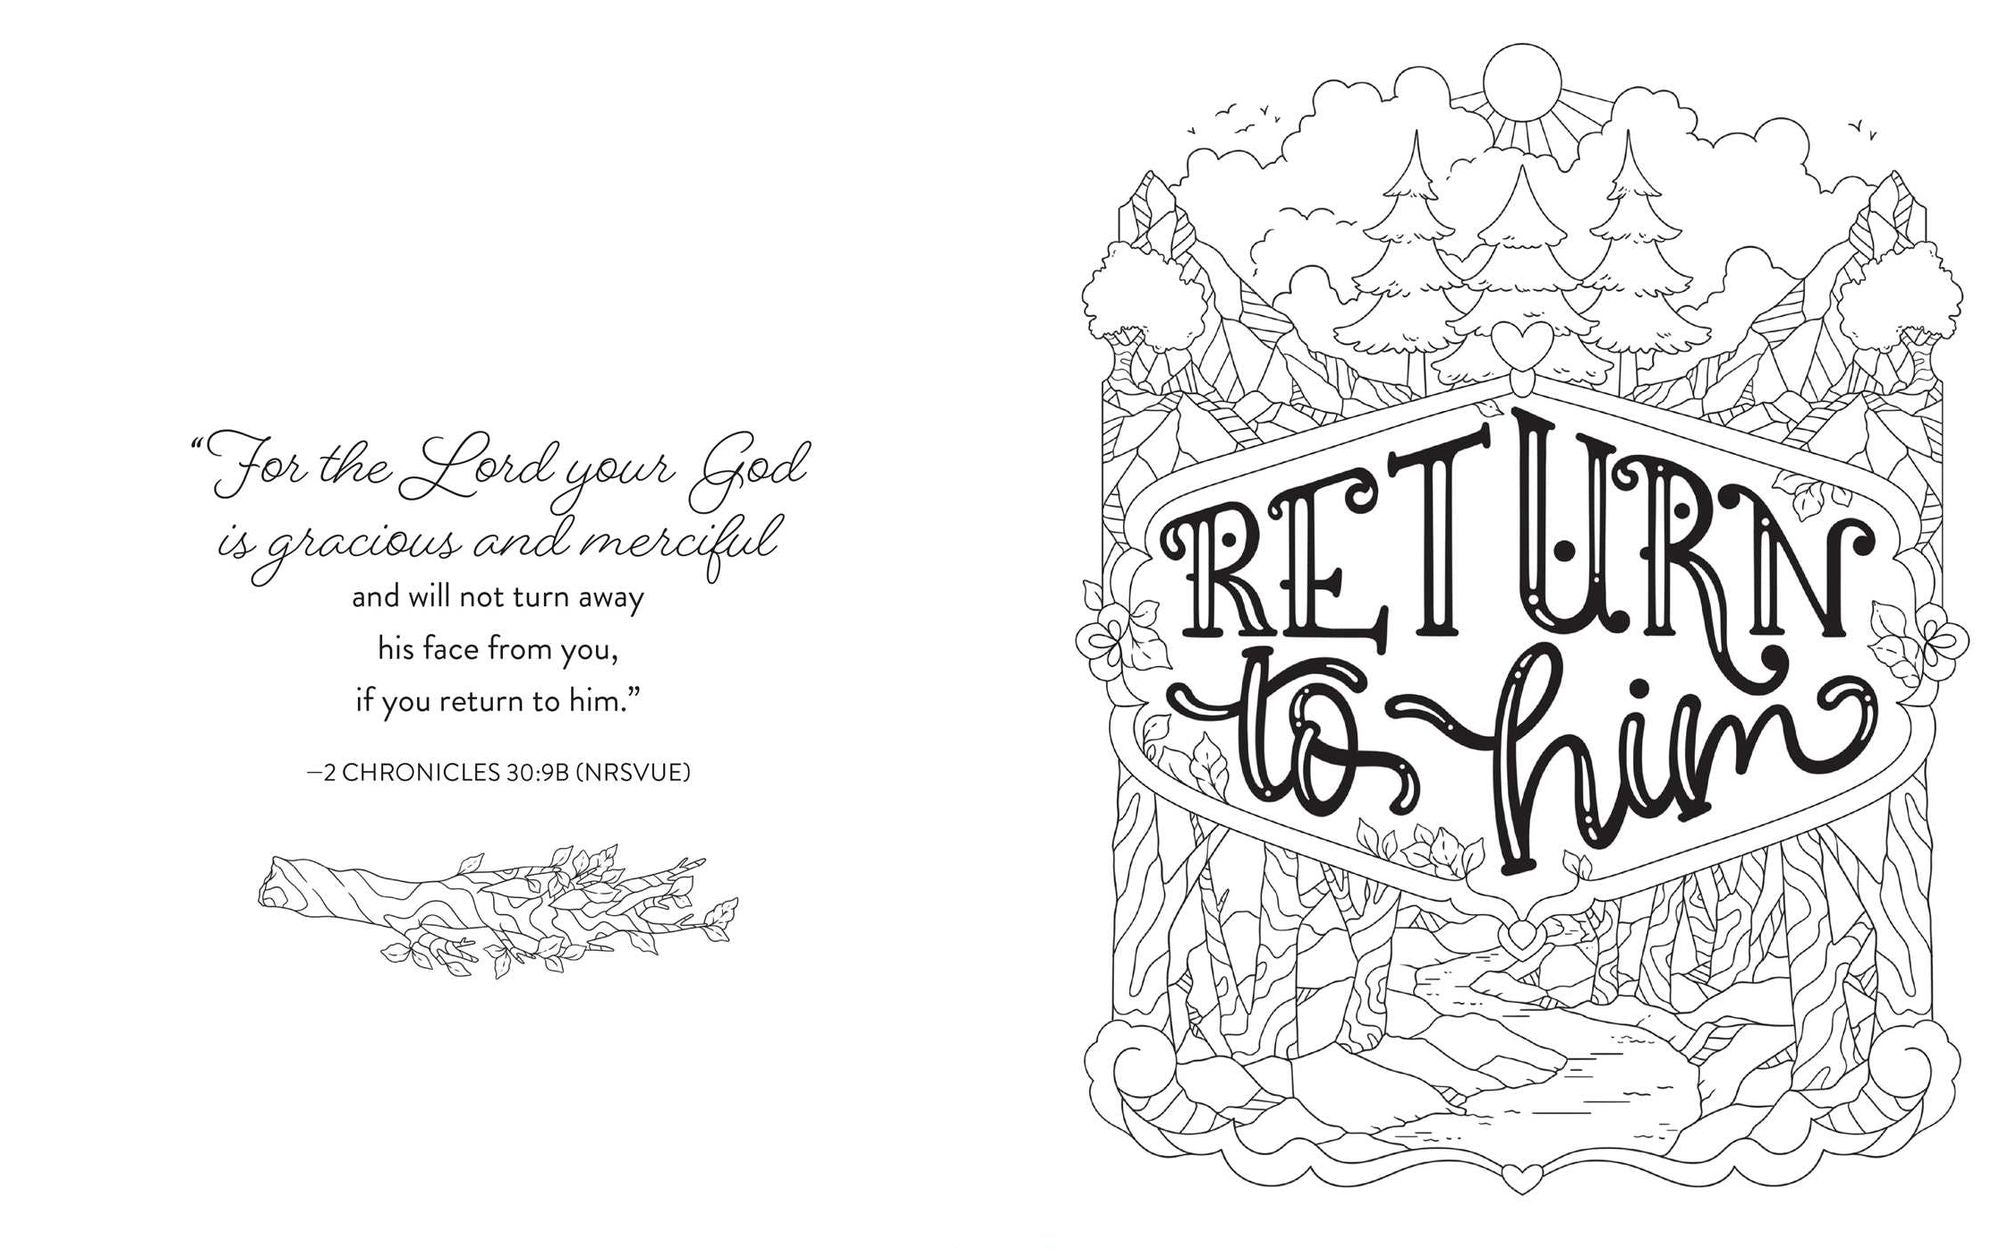 “For the Lord your God
is gracious and merciful
and will not turn away
his face from you,
if you return to him.”
—2 CHRONICLES 30:9B (NRSVUE)
RETURN
to him